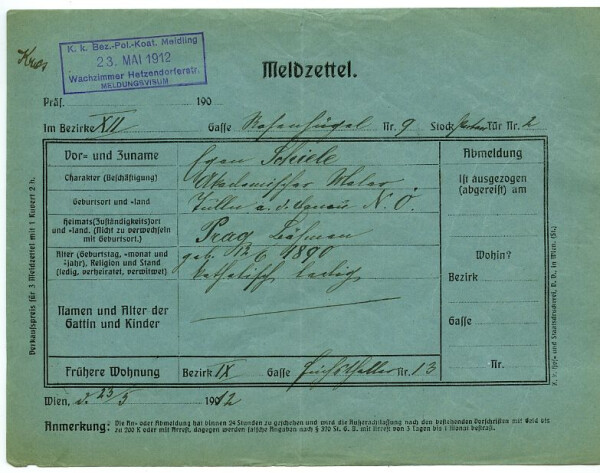 K. k. Bez.-Pol.-Koat. Meidling
23. MAI 1912
Wachzimmer Hetzendorferstr.
MELDUNGSVISUM
Meldzettel.
Präs. 190
Im Bezirke XII Gasse Rosenhügel Nr. 9 Stock Tür Nr. 2
Vor- und Zuname Egon Schiele
Charakter (Beschäftigung) Akademischer Maler
Geburtsort und -land Tulln a. d. Donau N. Ö.
Heimats(Zuständigkeits)ort und -land. (Nicht zu verwechseln mit Geburtsort.) Prag Böhmen
Alter (Geburtstag, -monat und -jahr), Religion und Stand (ledig, verheiratet, verwitwet) geb. 12 6. 1890
katholisch ledig
Namen und Alter der Gattin und Kinder
Frühere Wohnung Bezirk IX Gasse Nr. 13
Abmeldung
Ist ausgezogen
(abgereist) am
Wohin?
Bezirk
Gasse
Nr.
Wien, d. 23/5 1912
Anmerkung: Die An- oder Abmeldung hat binnen 24 Stunden zu geschehen und wird die Außerachtlassung nach den bestehenden Vorschriften mit Geld bis
zu 200 K oder mit Arrest, dagegen werden falsche Angaben nach § 320 St. G. B. mit Arrest von 3 Tagen bis 1 Monat bestraft.
Verkaufspreis für 3 Meldzettel mit 1 Kuvert 2 h.
K. k. Hof- und Staatsdruckerei, in Wien. (St.)